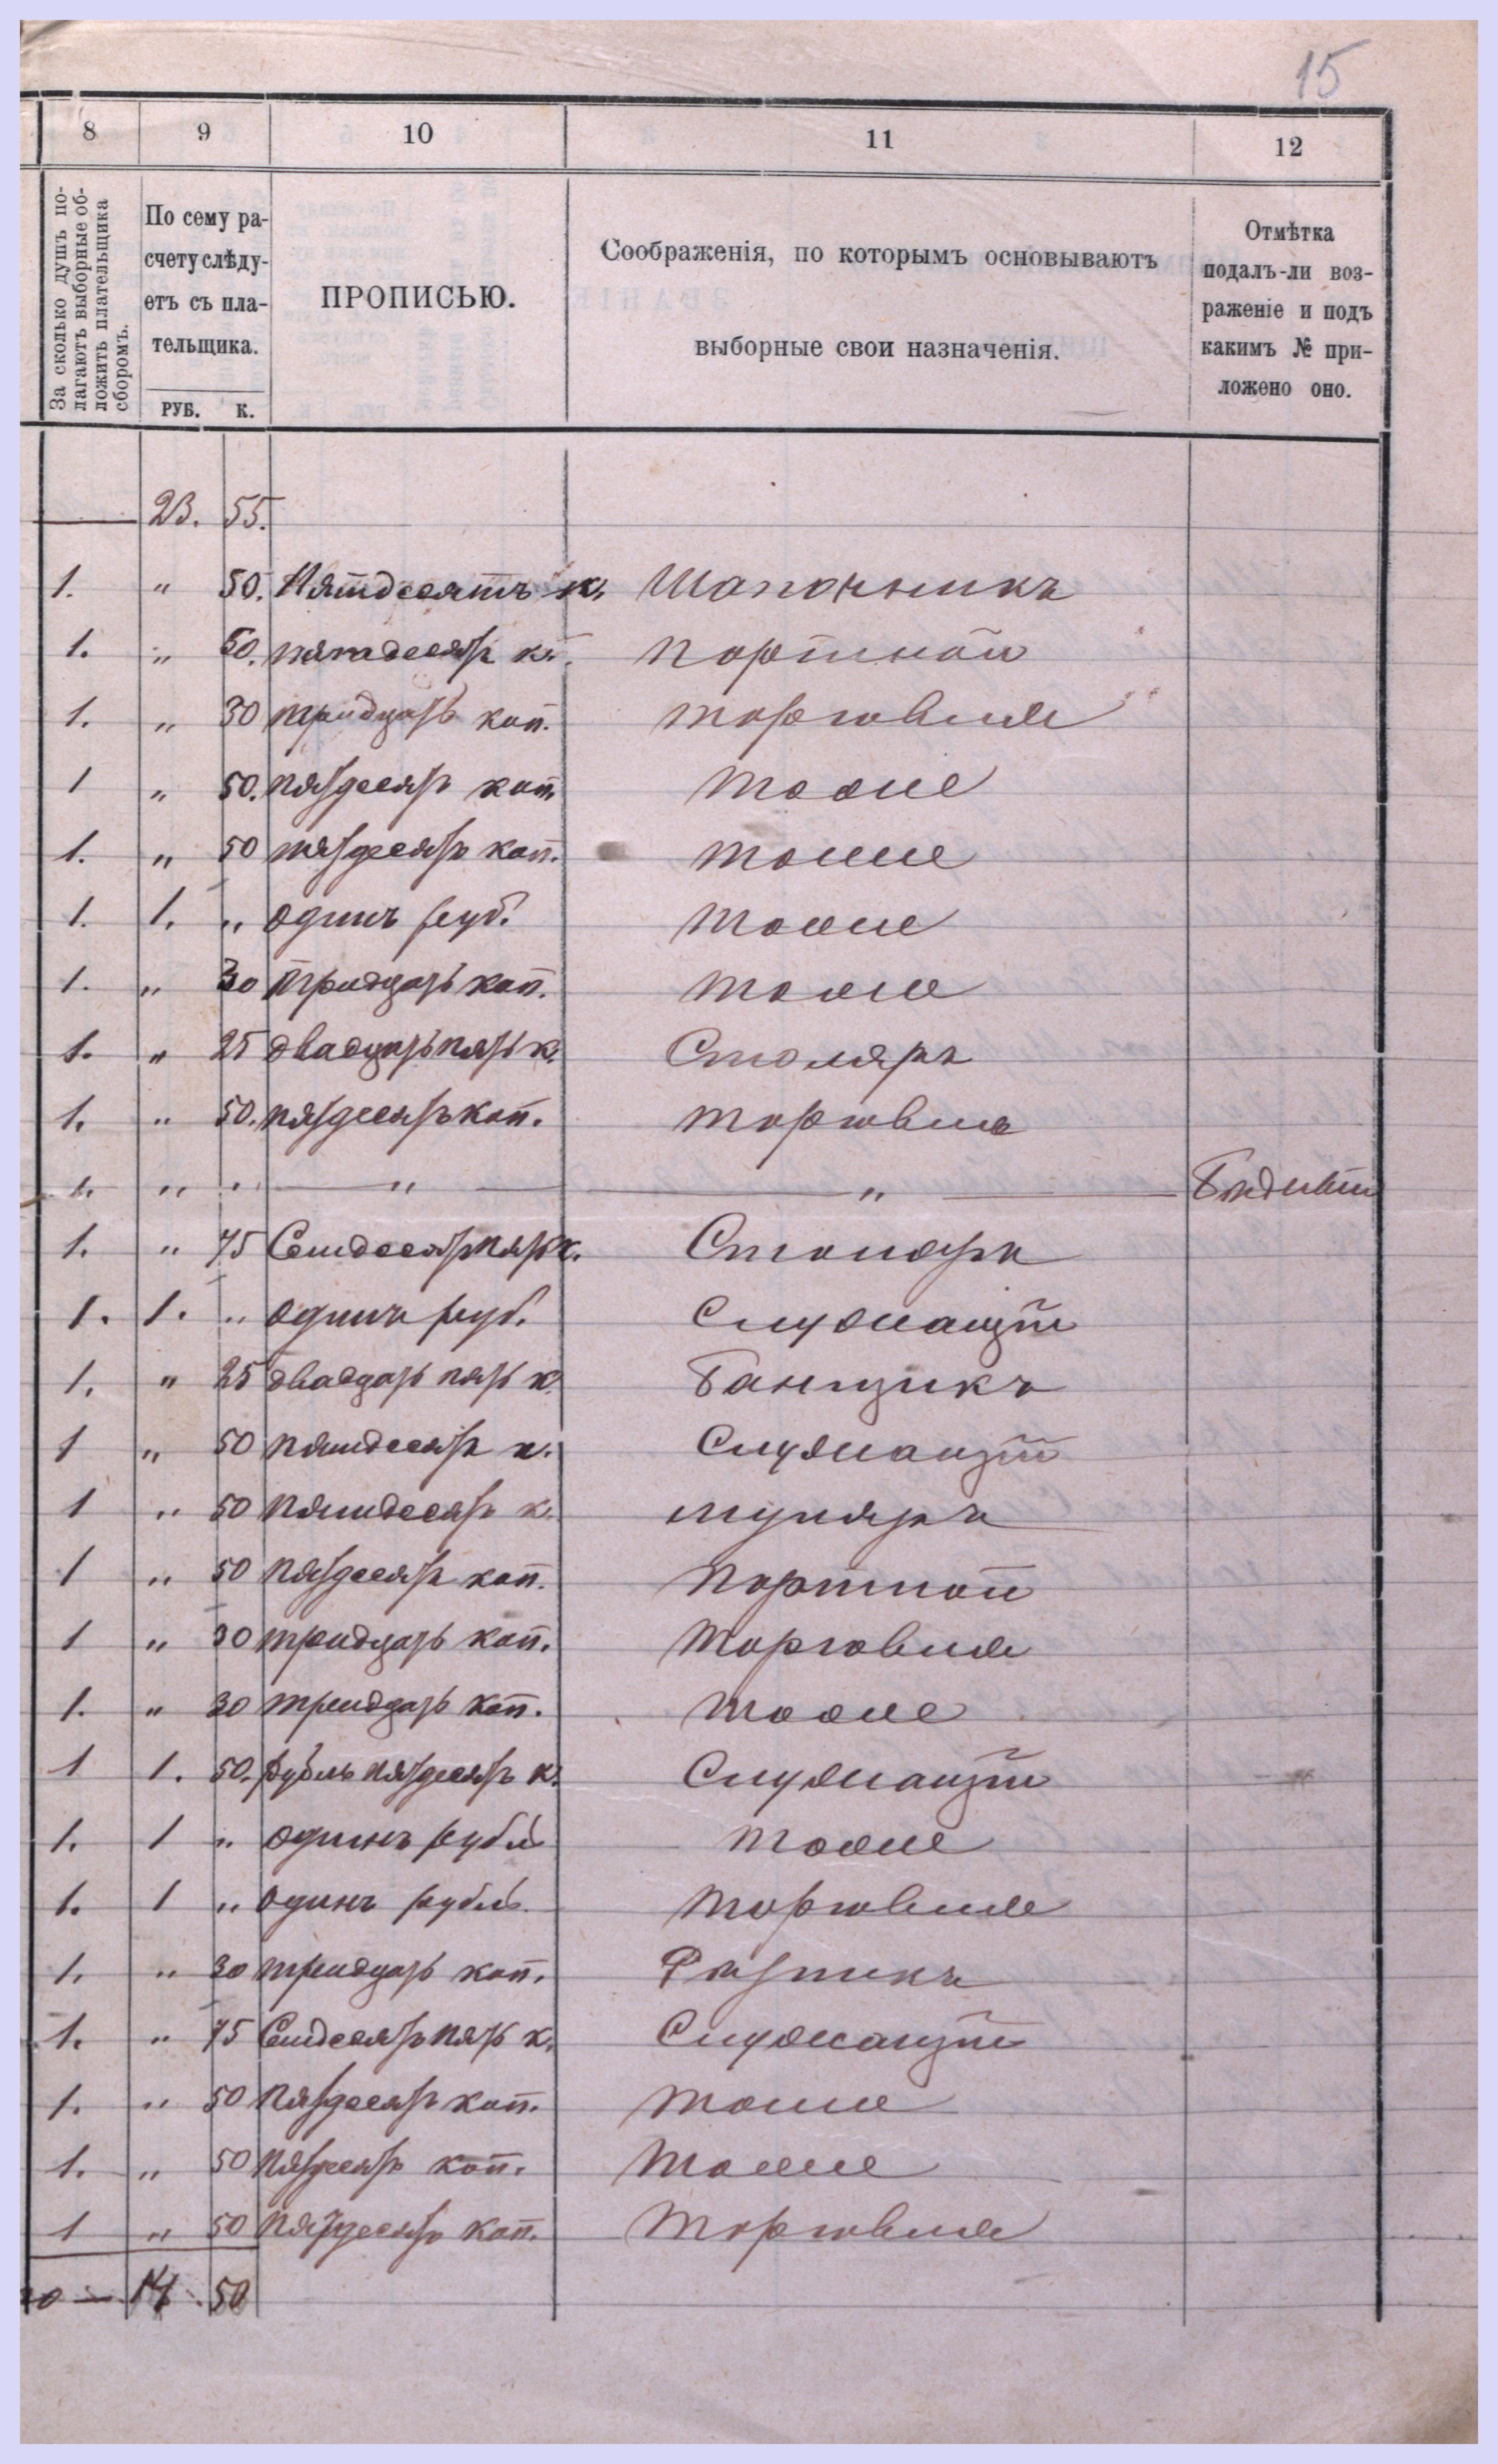 15
8 9 10 11 12
За сколько душъ по-
лагаютъ выборные об-
ложить плательщика
сборомъ.
По сему ра-
счету слѣду-
етъ съ пла-
тельщика.
РУБ. К.
ПРОПИСЬЮ.
Соображенія, по которымъ основываютъ
выборные свои назначенія.
Отмѣтка
подалъ-ли воз-
раженіе и подъ
какимъ № при-
ложено оно.
— 23. 55.
1. " 50. Пятдесятъ к. Шапочникъ
1. " 50. пятдесятъ к. портной
1. " 30 тридцать коп. торговля
1 " 50. пятдесятъ коп. тоже
1. " 50 пятдесятъ коп. тоже
1. 1. " одинъ руб. тоже
1. " 30 тридцать коп. тоже
1. " 25 двадцать пять к. Столяръ
1. " 50. пятдесятъ коп. торговля
1. " " — " — — " —
1. " 75 Семдесятъ пять к. Столяръ
1. 1. " одинъ руб. Служащій
1. " 25 двадцать пять к. Банщикъ
1 " 50 пятдесятъ к. Служащій
1 " 50 пятдесятъ к. муляръ
1 " 50 пятдесятъ коп. портной
1 " 30 тридцать коп. торговля
1. " 30 тридцать коп. тоже
1 1. 50. рубль пятдесятъ к. Служащій
1. 1 " одинъ рубль тоже
1. 1 " одинъ рубль торговля
1. " 30 тридцать коп. Рѣзникъ
1. " 75 Семдесятъ пять к. Служащій
1. " 50 пятдесятъ коп. тоже
1. " 50 пятдесятъ коп. тоже
1 " 50 пятдесятъ коп. торговля
— 14. 50